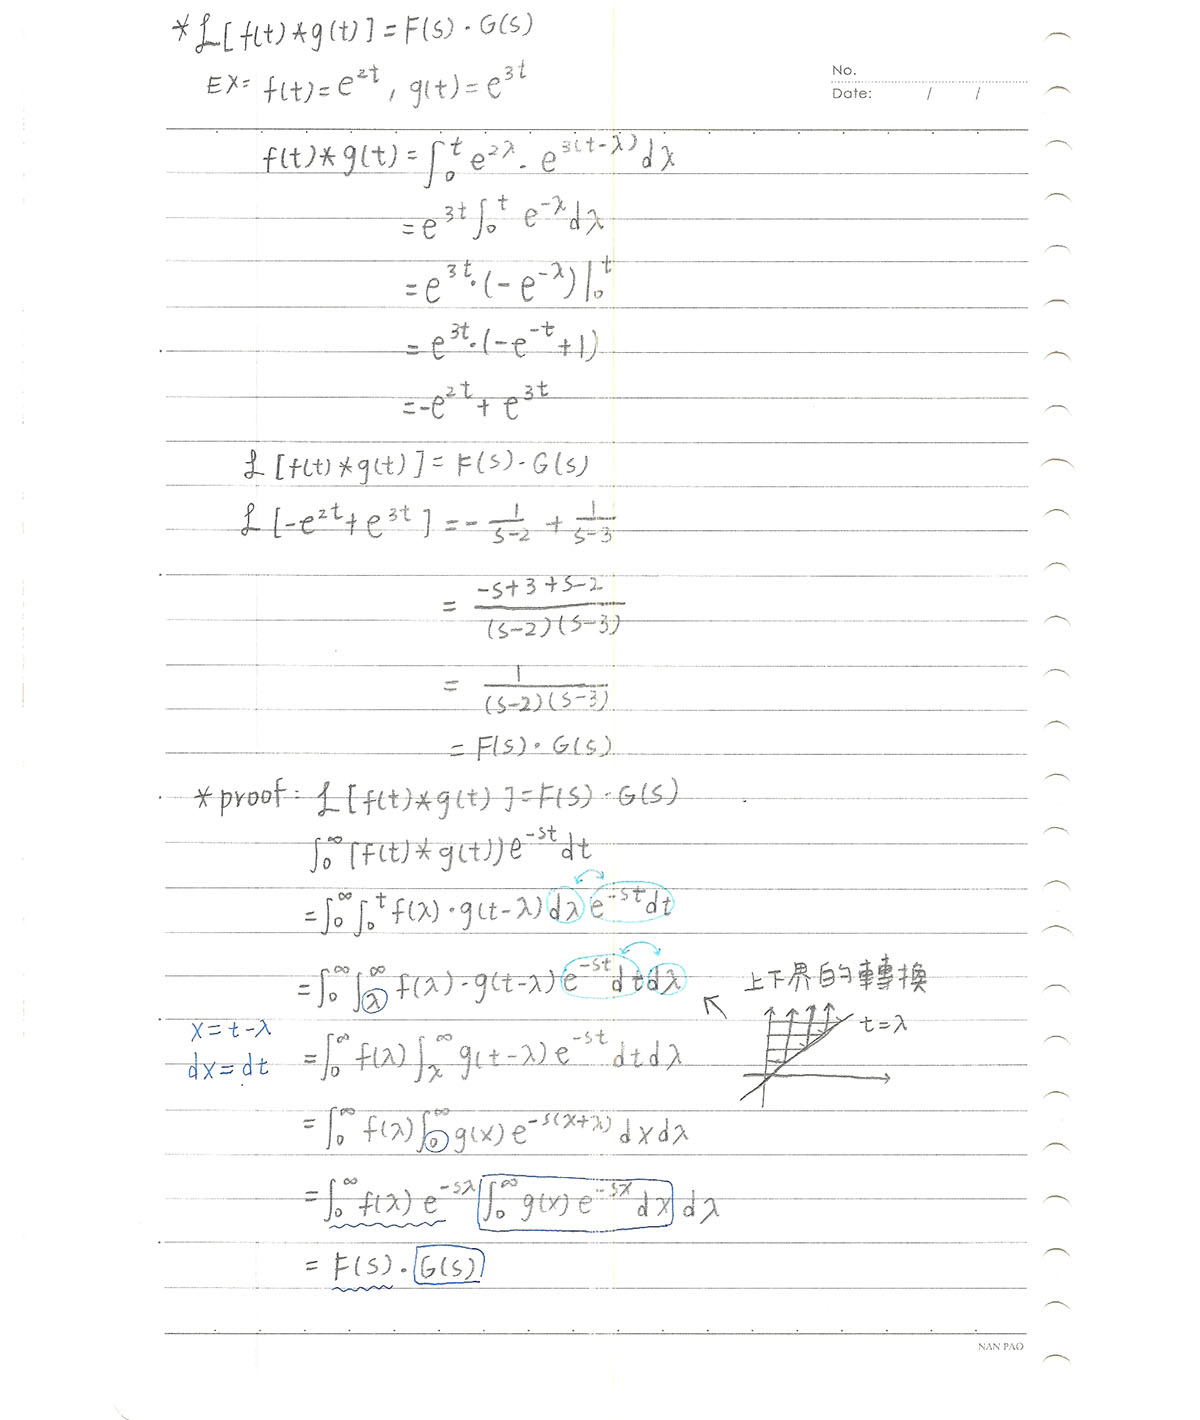 * ℒ[f(t)*g(t)] = F(s)·G(s)
EX= f(t)=e^{2t}, g(t)=e^{3t}
No.
Date: / /
f(t)*g(t) = ∫_0^t e^{2λ}·e^{3(t-λ)}dλ
= e^{3t}∫_0^t e^{-λ}dλ
= e^{3t}·(-e^{-λ})|_0^t
= e^{3t}·(-e^{-t}+1)
= -e^{2t}+e^{3t}
ℒ[f(t)*g(t)] = F(s)·G(s)
ℒ[-e^{2t}+e^{3t}] = - 1/(s-2) + 1/(s-3)
= (-s+3+s-2)/((s-2)(s-3))
= 1/((s-2)(s-3))
= F(s)·G(s)
* proof: ℒ[f(t)*g(t)] = F(s)·G(s)
∫_0^∞ [f(t)*g(t)) e^{-st}dt
= ∫_0^∞ ∫_0^t f(λ)·g(t-λ)dλ e^{-st}dt
= ∫_0^∞ ∫_λ^∞ f(λ)·g(t-λ) e^{-st}dtdλ
↖ 上下界的轉換
t=λ
x=t-λ
dx=dt
= ∫_0^∞ f(λ) ∫_λ^∞ g(t-λ) e^{-st} dtdλ
= ∫_0^∞ f(λ) ∫_0^∞ g(x) e^{-s(x+λ)} dxdλ
= ∫_0^∞ f(λ) e^{-sλ} ∫_0^∞ g(x) e^{-sx} dx dλ
= F(s)·G(s)
NAN PAO